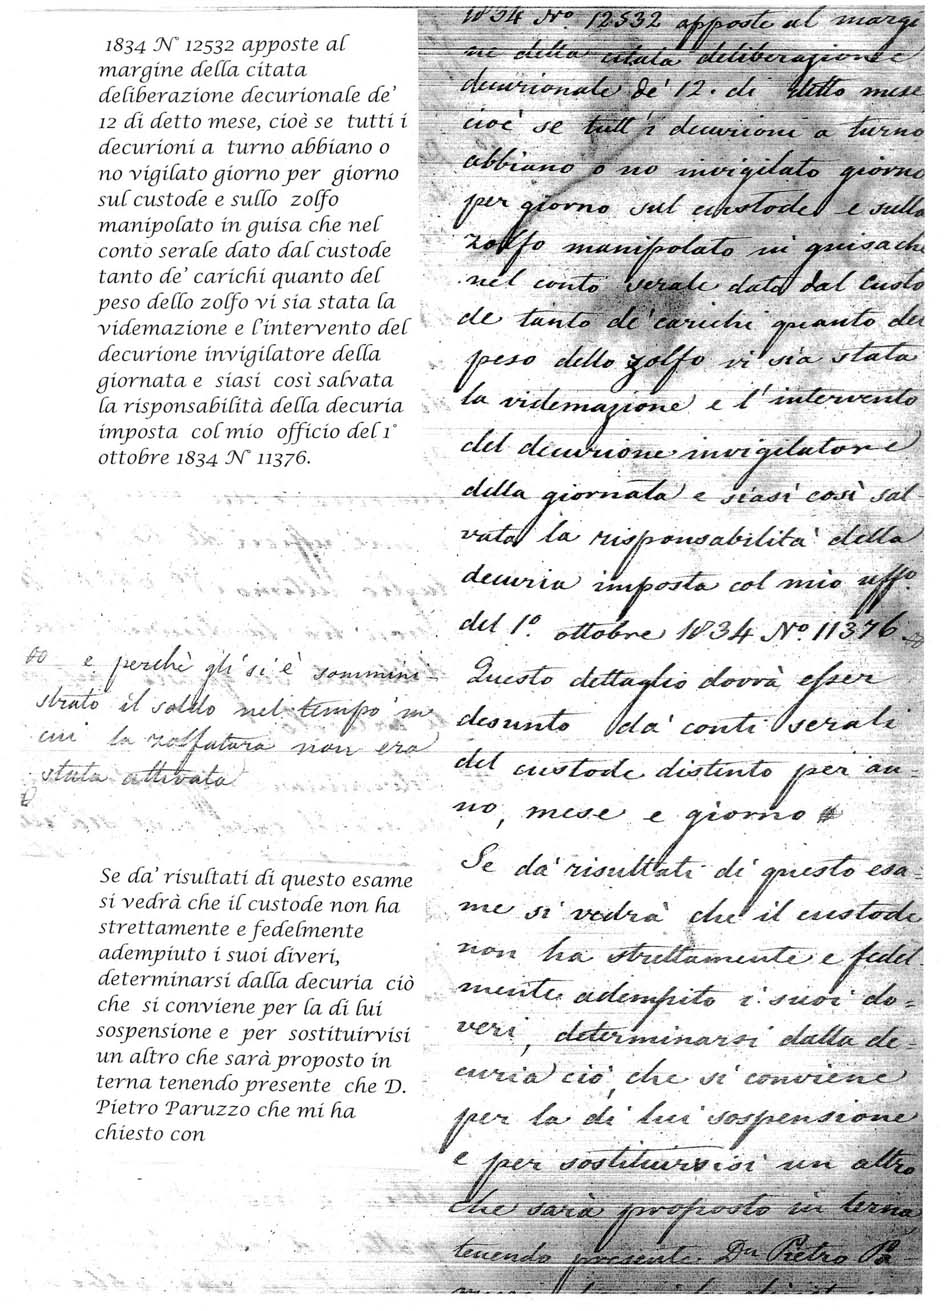 1834 N° 12532 apposte al
margine della citata
deliberazione decurionale de'
12 di detto mese, cioè se tutti i
decurioni a turno abbiano o
no vigilato giorno per giorno
sul custode e sullo zolfo
manipolato in guisa che nel
conto serale dato dal custode
tanto de' carichi quanto del
peso dello zolfo vi sia stata la
videmazione e l'intervento del
decurione invigilatore della
giornata e siasi così salvata
la risponsabilità della decuria
imposta col mio officio del 1°
ottobre 1834 N° 11376.
e perchè gli si è sommini-
strato il soldo nel tempo in
cui la zolfatara non era
stata attivata
Se da' risultati di questo esame
si vedrà che il custode non ha
strettamente e fedelmente
adempiuto i suoi diveri,
determinarsi dalla decuria ciò
che si conviene per la di lui
sospensione e per sostituirvisi
un altro che sarà proposto in
terna tenendo presente che D.
Pietro Paruzzo che mi ha
chiesto con
1834 N°. 12532 apposte al margi
ne della citata deliberazione
decurionale de' 12. di detto mese
cioè se tutt'i decurioni a turno
abbiano o no invigilato giorno
per giorno sul custode e sullo
zolfo manipolato in guisa che
nel conto serale dato dal custo
de tanto de' carichi quanto del
peso dello zolfo vi sia stata
la videmazione e l'intervento
del decurione invigilatore
della giornata e siasi così sal-
vata la risponsabilità della
decuria imposta col mio uffo.
del 1°. ottobre 1834 N°. 11376
Questo dettaglio dovrà esser
desunto da' conti serali
del custode distinto per an-
no, mese e giorno
Se da' risultati di questo esa-
me si vedrà che il custode
non ha strettamente e fedel-
mente adempito i suoi do=
veri, determinarsi dalla de-
curia ciò che si conviene
per la di lui sospensione
e per sostituirvisi un altro
che sarà proposto in terna,
tenendo presente Dn Pietro Pa